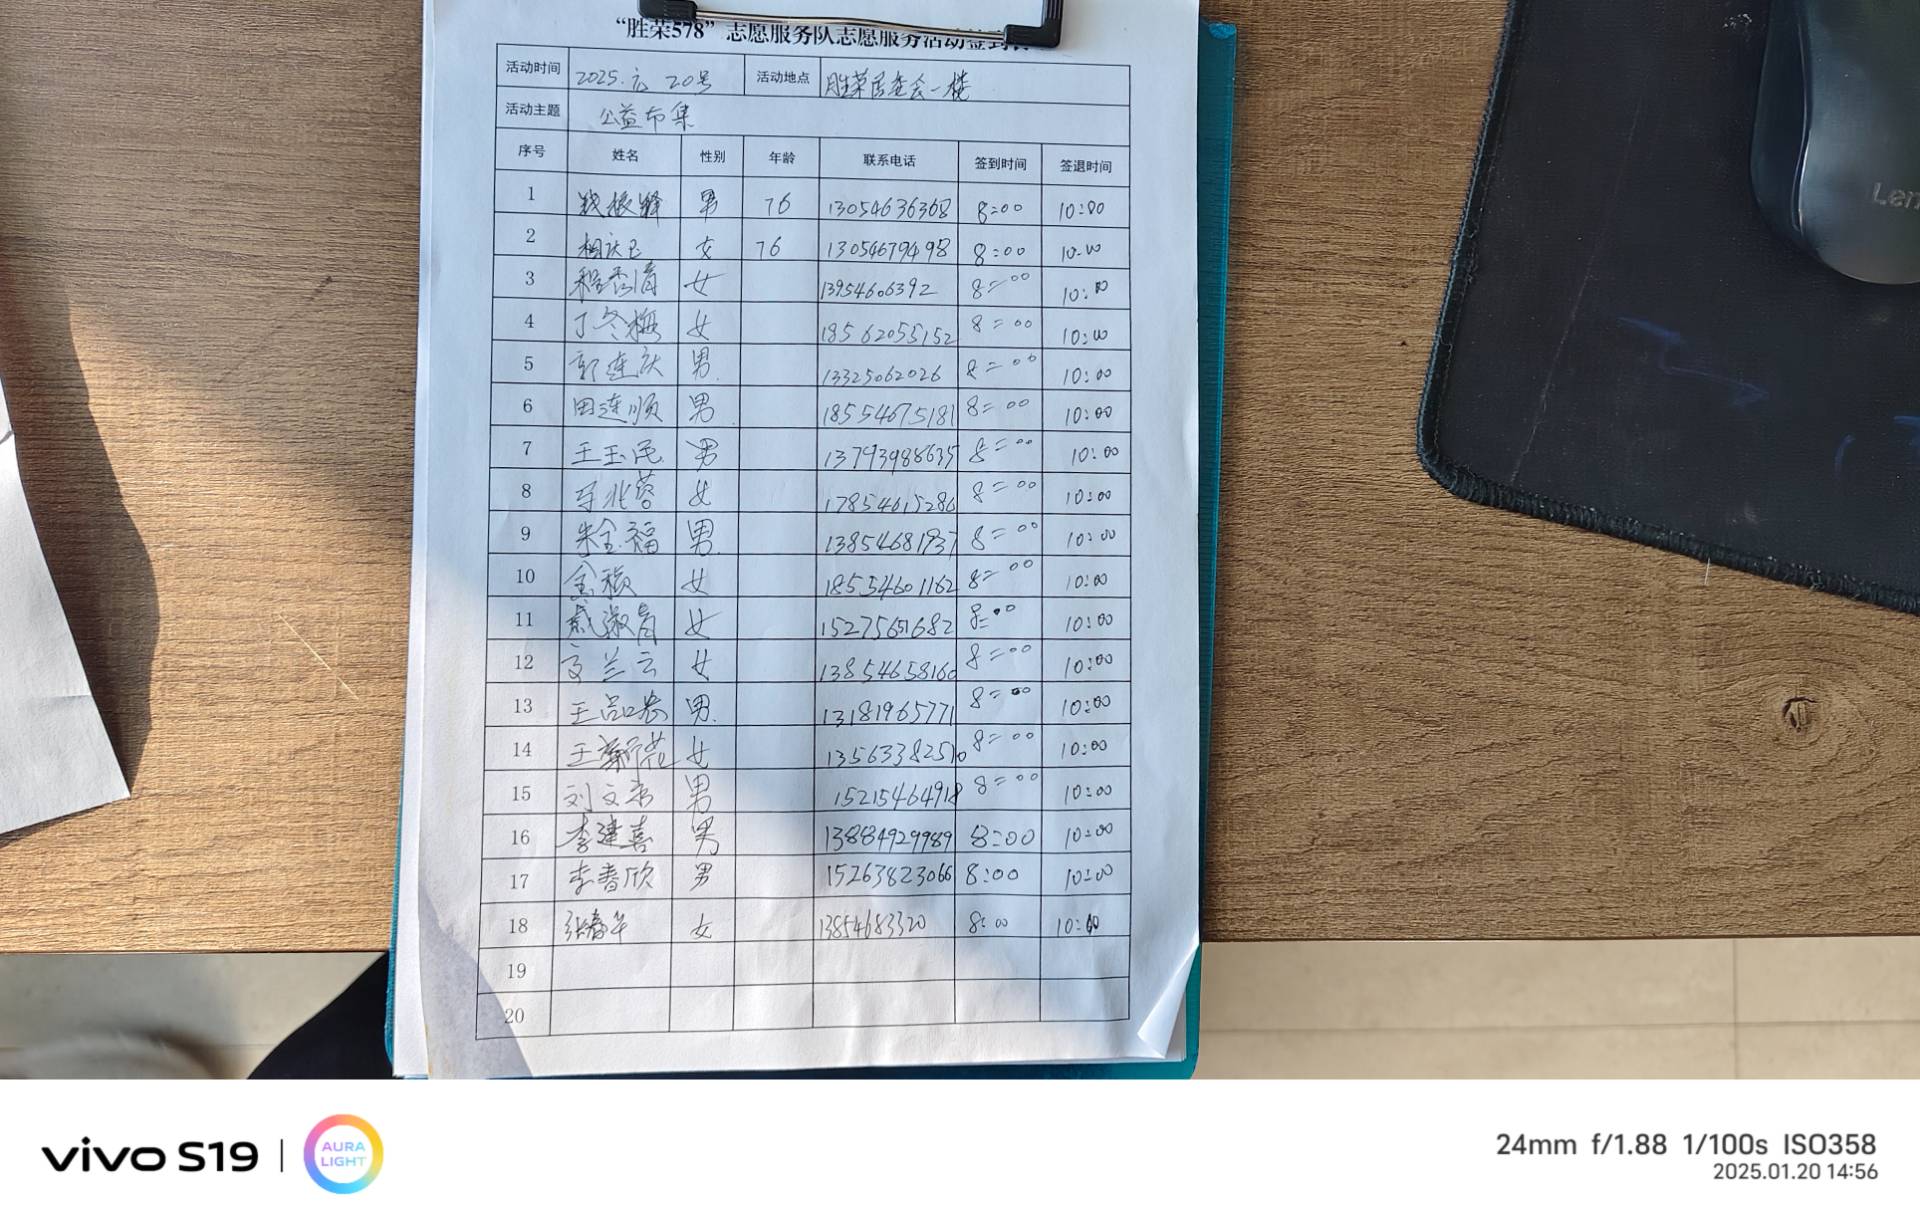 “胜荣578”志愿服务队志愿服务活动签到
活动时间 2025. 20号 活动地点 胜荣居委会一楼
活动主题 公益市集
序号 姓名 性别 年龄 联系电话 签到时间 签退时间
1 男 76 13054636368 8:00 10:00
2 女 76 13054679498 8:00 10:00
3 程秀清 女 13954606392 8:00 10:00
4 丁冬梅 女 18562055152 8:00 10:00
5 郭连庆 男 13325062026 8:00 10:00
6 田连顺 男 18554675181 8:00 10:00
7 王玉民 男 13793988635 8:00 10:00
8 女 17854615286 8:00 10:00
9 朱金福 男 13854681937 8:00 10:00
10 金颖 女 18554601162 8:00 10:00
11 戴淑青 女 15275651682 8:00 10:00
12 文兰云 女 13854658160 8:00 10:00
13 王品 男 13181965771 8:00 10:00
14 王菊花 女 13563382510 8:00 10:00
15 刘文 男 15215464918 8:00 10:00
16 李建喜 男 13884929989 8:00 10:00
17 李春欣 男 15263823066 8:00 10:00
18 张春 女 13854683320 8:00 10:00
19
20
Len
vivo S19
AURA
LIGHT
24mm f/1.88 1/100s ISO358
2025.01.20 14:56